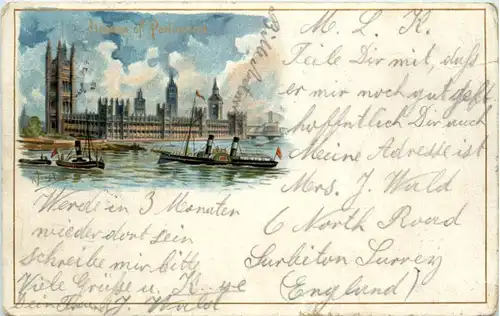 Houses of Parliament
M. L. K.
Teile Dir mit, daß
er mir noch gut
hoffentlich Dir auch
Meine Adresse ist
Mrs. J. Wald
6 North Road
Surbiton Surrey
(England)
Werde in 3 Monaten
wieder dort sein
schreibe mir bitte
Viele Grüße u. K.
Dein J. Wald